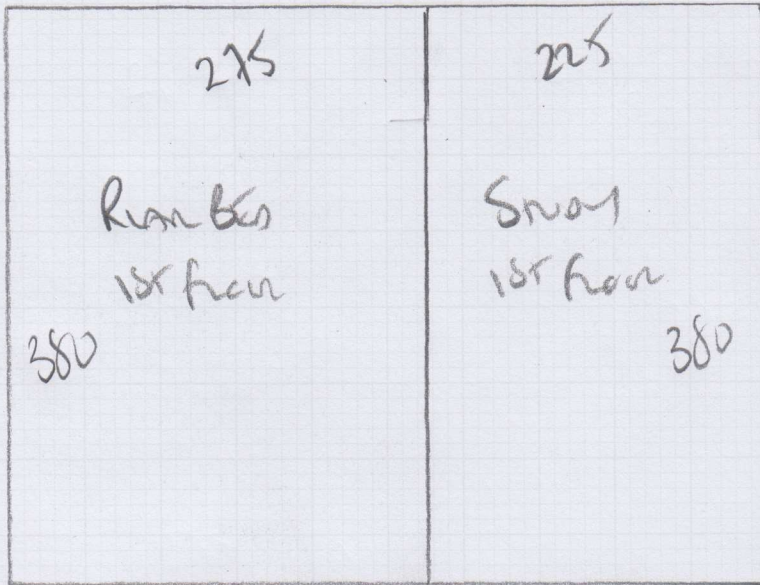 275
Rear Bed
1st floor
380
225
Study
1st floor
380